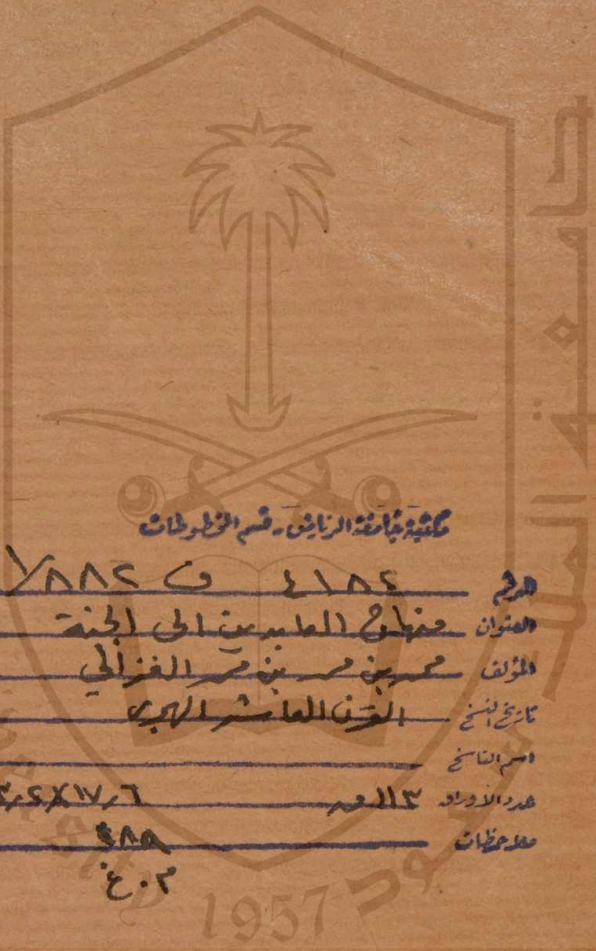 مكتبة جامعة الرياض - قسم المخطوطات
الرقم ٤١٨٢ ف ١/٨٨٢
العنوان منهاج العابدين الى الجنة
المؤلف محمد بن محمد بن محمد الغزالي
تاريخ النسخ القرن العاشر الهجري
اسم الناسخ
عدد الأوراق
ملاحظات
1957